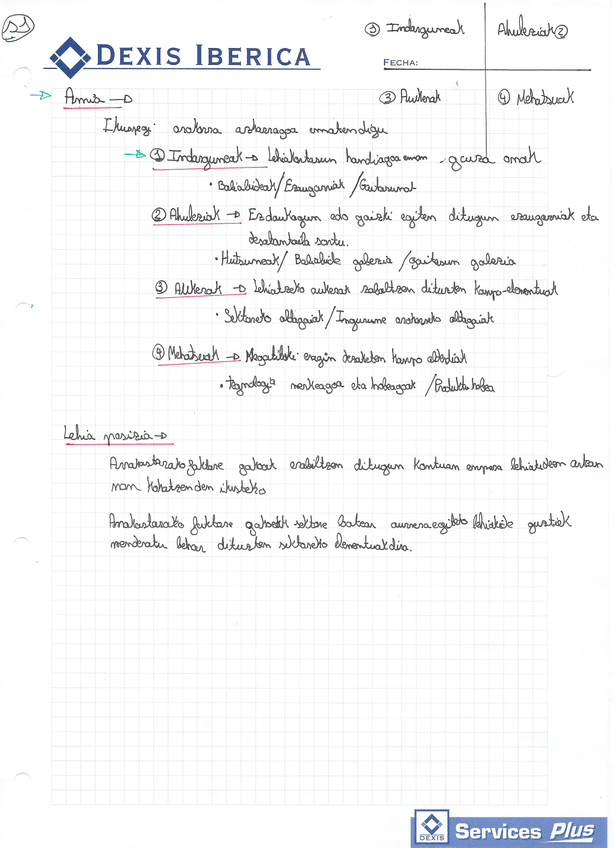 ① Indarguneak Ahuleziak ②
DEXIS IBERICA
FECHA:
③ Aukerak ④ Mehatxuak
Amia →
Ikuspegi orokorra errazteagoa ematen digu
① Indarguneak → Lehiakortasun handiagoa eman gauza onak
• Baliabideak / Ezaugarriak / Gaitasunak
② Ahuleziak → Ez daukagun edo gaizki egiten ditugun ezaugarriak eta
desabantaila sortu.
• Hutsuneak / Baliabide galezia / gaitasun galezia
③ Aukerak → Lehiatzeko aukerak zabaltzen dituzten kanpo-elementuak
• Sektoreko aldagaiak / Ingurune orokorreko aldagaiak
④ Mehatxuak → Negatiboki eragin dezaketen kanpo aldeak
• Teknologia merkeagoa eta hobeagoak / Produktu hobea
Lehia posizia →
Arrakastarako faktore gakoak erabiltzen ditugun kontuan enpresa lehiakideen artean
non kokatzen den ikusteko
Arrakastarako faktore gakoak sektore batean aurrera egiteko lehiakide guztiek
menderatu behar dituzten sektoreko elementuak dira.
DEXIS
Services Plus